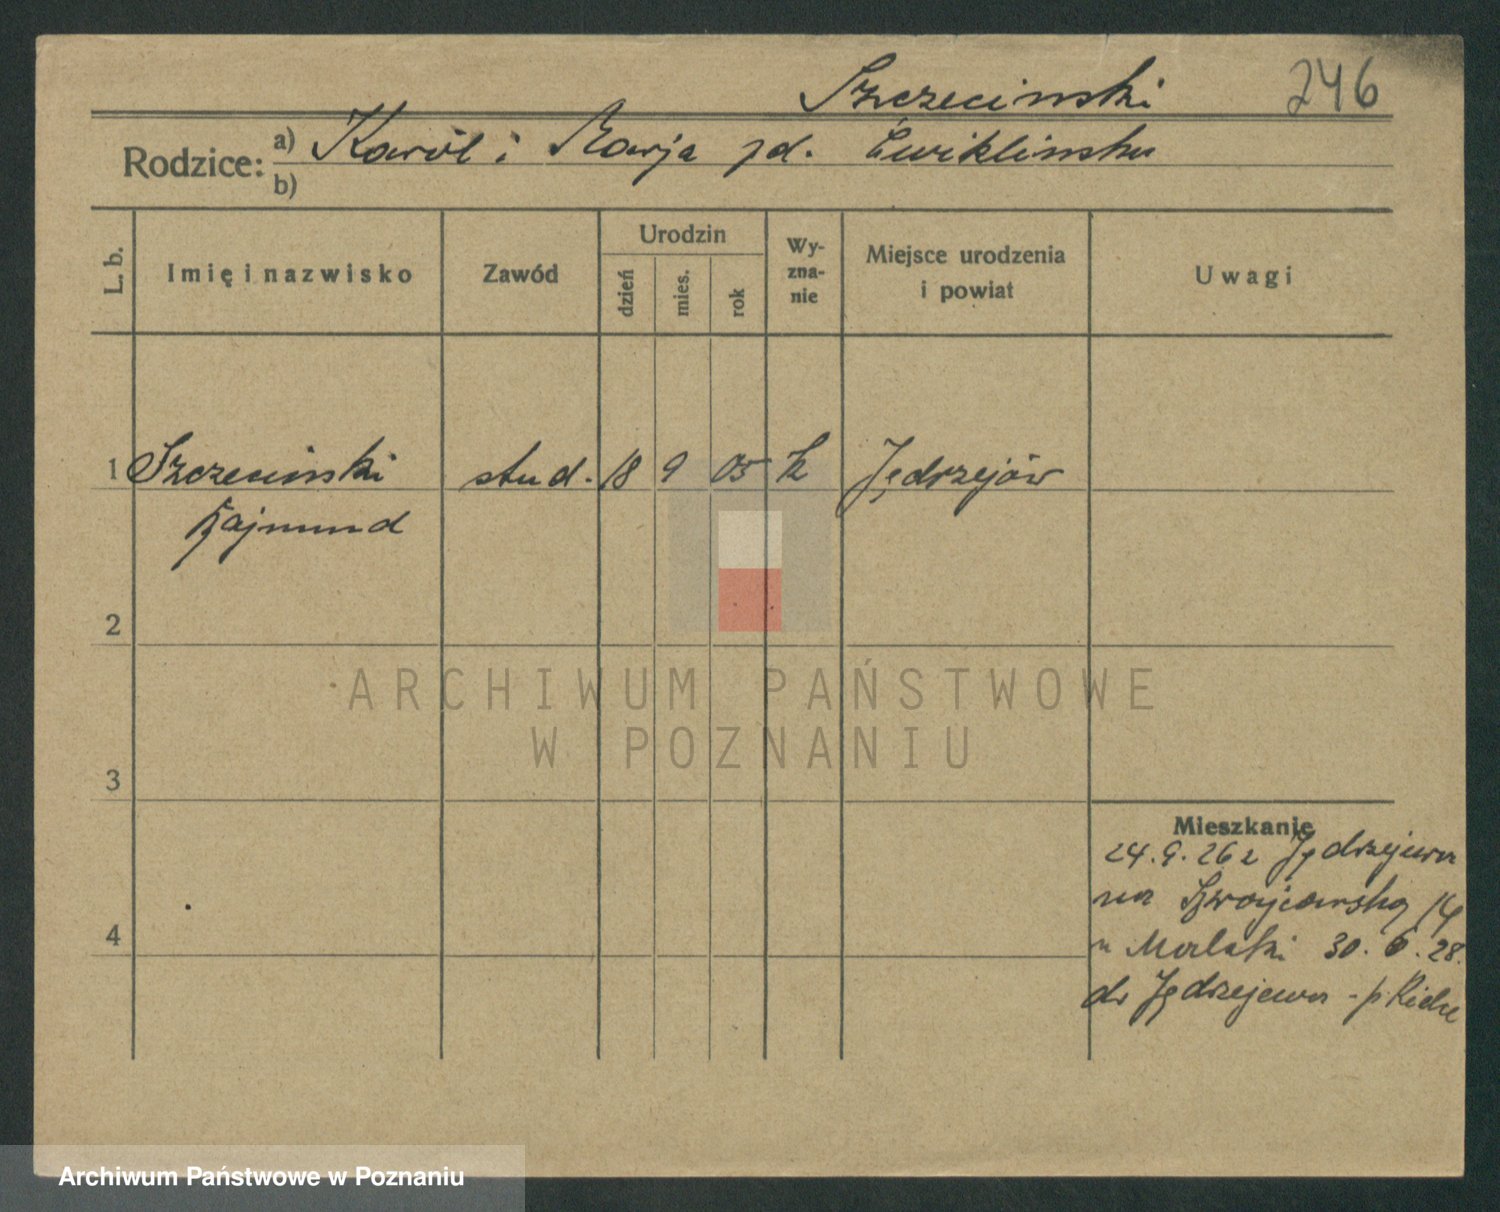 Szczecinski 246
Rodzice: a) Karól i Marja zd. Ćwiklinska
b)
L. b. Imię i nazwisko Zawód Urodzin dzień mies. rok Wyznanie Miejsce urodzenia i powiat Uwagi
1 Szczecinski stud. 18 9 05 k Jędrzejów
Rajmund
2
ARCHIWUM PAŃSTWOWE
W POZNANIU
3
Mieszkanie
24.9.26 z Jędrzejewa
na Szwajcarską 14
u 30.6.28.
4
do Jędrzejewa - p. Kielce
Archiwum Państwowe w Poznaniu